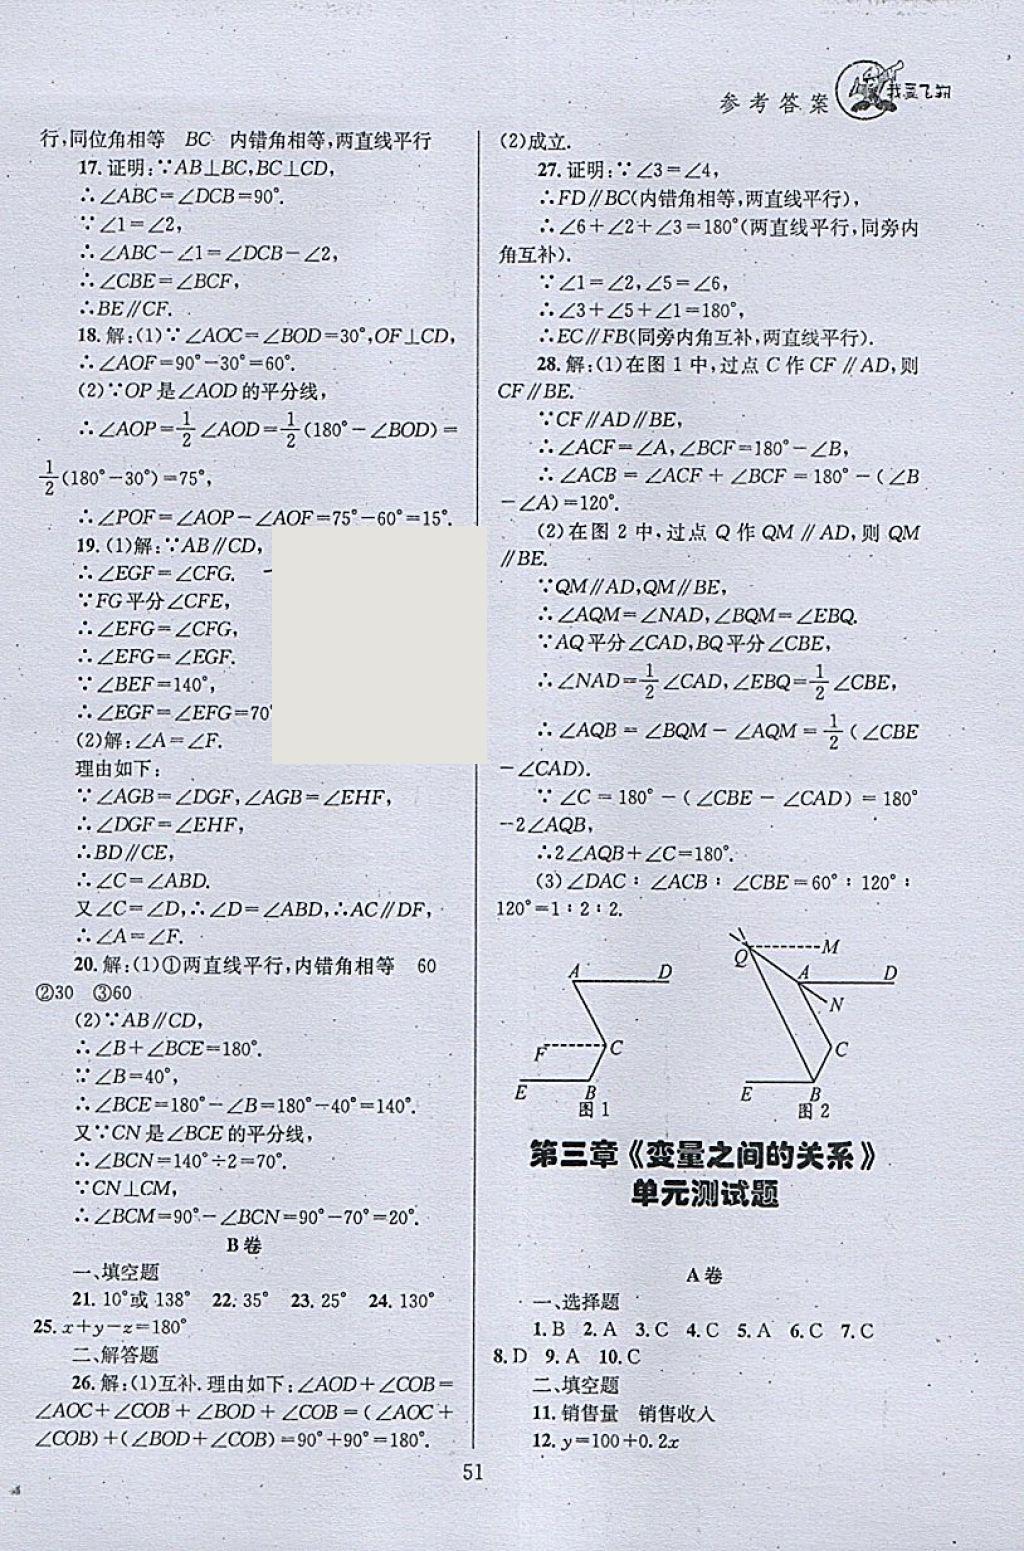 参考答案
行,同位角相等 BC 内错角相等,两直线平行
17.证明:∵AB⊥BC,BC⊥CD,
∴∠ABC=∠DCB=90°.
∵∠1=∠2,
∴∠ABC-∠1=∠DCB-∠2,
∴∠CBE=∠BCF,
∴BE∥CF.
18.解:(1)∵∠AOC=∠BOD=30°,OF⊥CD,
∴∠AOF=90°-30°=60°.
(2)∵OP是∠AOD的平分线,
∴∠AOP=1/2∠AOD=1/2(180°-∠BOD)=
1/2(180°-30°)=75°,
∴∠POF=∠AOP-∠AOF=75°-60°=15°.
19.(1)解:∵AB∥CD,
∴∠EGF=∠CFG.
∵FG平分∠CFE,
∴∠EFG=∠CFG,
∴∠EFG=∠EGF.
∵∠BEF=140°,
∴∠EGF=∠EFG=70°
(2)解:∠A=∠F.
理由如下:
∵∠AGB=∠DGF,∠AGB=∠EHF,
∴∠DGF=∠EHF,
∴BD∥CE,
∴∠C=∠ABD.
又∠C=∠D,∴∠D=∠ABD,∴AC∥DF,
∴∠A=∠F.
20.解:(1)①两直线平行,内错角相等 60
②30 ③60
(2)∵AB∥CD,
∴∠B+∠BCE=180°.
∵∠B=40°,
∴∠BCE=180°-∠B=180°-40°=140°.
又∵CN是∠BCE的平分线,
∴∠BCN=140°÷2=70°.
∵CN⊥CM,
∴∠BCM=90°-∠BCN=90°-70°=20°.
B卷
一、填空题
21.10°或138° 22.35° 23.25° 24.130°
25.x+y-z=180°
二、解答题
26.解:(1)互补.理由如下:∠AOD+∠COB=
∠AOC+∠COB+∠BOD+∠COB=(∠AOC+
∠COB)+(∠BOD+∠COB)=90°+90°=180°.
(2)成立.
27.证明:∵∠3=∠4,
∴FD∥BC(内错角相等,两直线平行),
∴∠6+∠2+∠3=180°(两直线平行,同旁内
角互补).
∵∠1=∠2,∠5=∠6,
∴∠3+∠5+∠1=180°,
∴EC∥FB(同旁内角互补,两直线平行).
28.解:(1)在图1中,过点C作CF∥AD,则
CF∥BE.
∵CF∥AD∥BE,
∴∠ACF=∠A,∠BCF=180°-∠B,
∴∠ACB=∠ACF+∠BCF=180°-(∠B
-∠A)=120°.
(2)在图2中,过点Q作QM∥AD,则QM
∥BE.
∵QM∥AD,QM∥BE,
∴∠AQM=∠NAD,∠BQM=∠EBQ.
∵AQ平分∠CAD,BQ平分∠CBE,
∴∠NAD=1/2∠CAD,∠EBQ=1/2∠CBE,
∴∠AQB=∠BQM-∠AQM=1/2(∠CBE
-∠CAD).
∵∠C=180°-(∠CBE-∠CAD)=180°
-2∠AQB,
∴2∠AQB+∠C=180°.
(3)∠DAC∶∠ACB∶∠CBE=60°∶120°∶
120°=1∶2∶2.
A D
F C
E B
图1
Q M
A D
N
C
E B
图2
第三章《变量之间的关系》
单元测试题
A卷
一、选择题
1.B 2.A 3.C 4.C 5.A 6.C 7.C
8.D 9.A 10.C
二、填空题
11.销售量 销售收入
12.y=100+0.2x
51